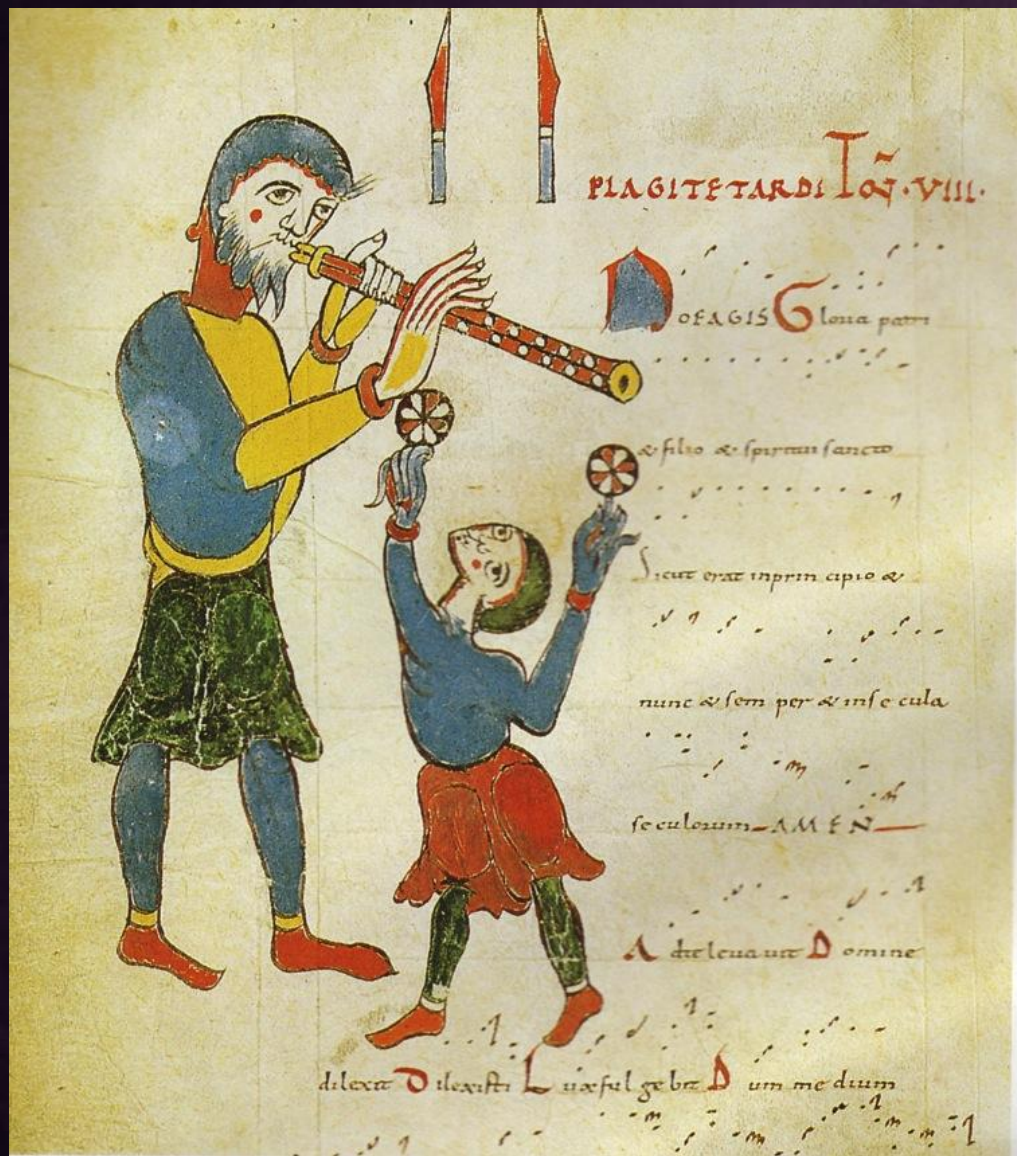 PLAGITETARDI Toñ·VIII·
NOEAGIS Gloria patri
& filio & spiritui sancto
Sicut erat inprin cipio &
nunc & sem per & inse cula
seculorum AMEN
Ad te levavit Domine
dilexit Dilexisti Lux ful gebit Dum me dium